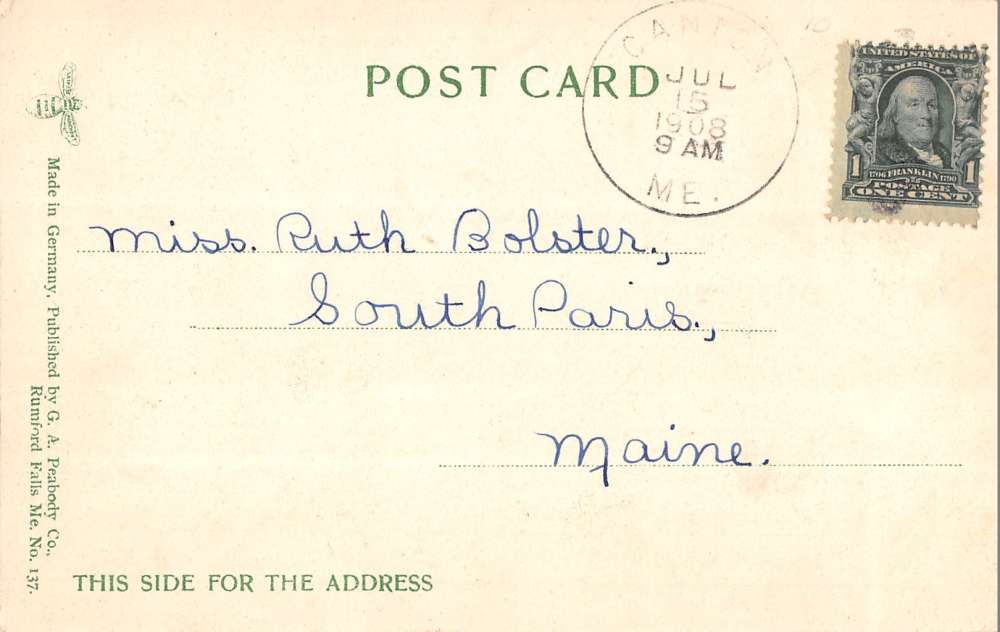 POST CARD
CANTON
JUL
15
1908
9 AM
ME.
UNITED STATES OF
AMERICA
1 1
1706 FRANKLIN 1790
POSTAGE
ONE CENT
Miss. Ruth Bolster.,
South Paris.,
Maine.
Made in Germany, Published by G. A. Peabody Co.,
Rumford Falls Me. No. 137.
THIS SIDE FOR THE ADDRESS